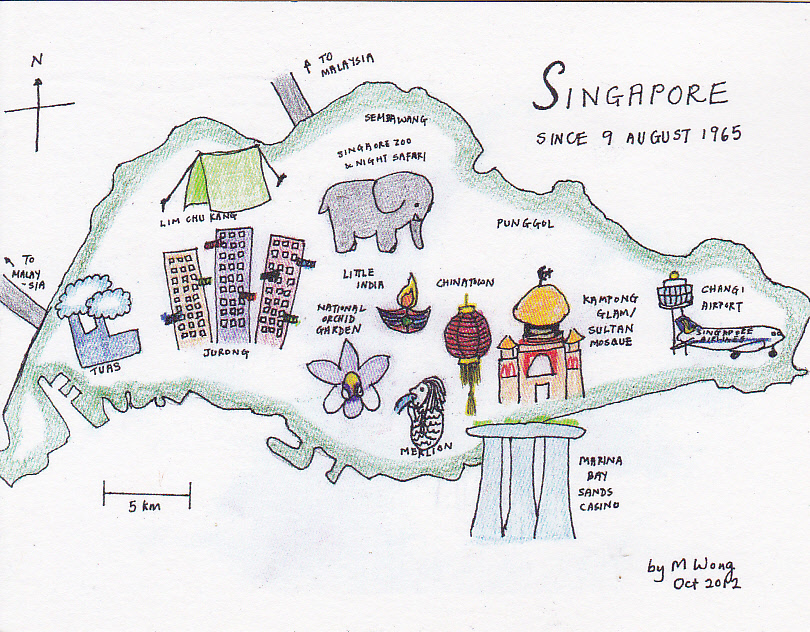 N
↑ TO
MALAYSIA
SINGAPORE
SINCE 9 AUGUST 1965
SEMBAWANG
SINGAPORE ZOO
& NIGHT SAFARI
LIM CHU KANG
PUNGGOL
TO
MALAY
-SIA
LITTLE
INDIA
CHINATOWN
NATIONAL
ORCHID
GARDEN
KAMPONG
GLAM/
SULTAN
MOSQUE
CHANGI
AIRPORT
SINGAPORE
AIRLINES
JURONG
TUAS
MERLION
MARINA
BAY
SANDS
CASINO
5 km
by M Wong
Oct 2012